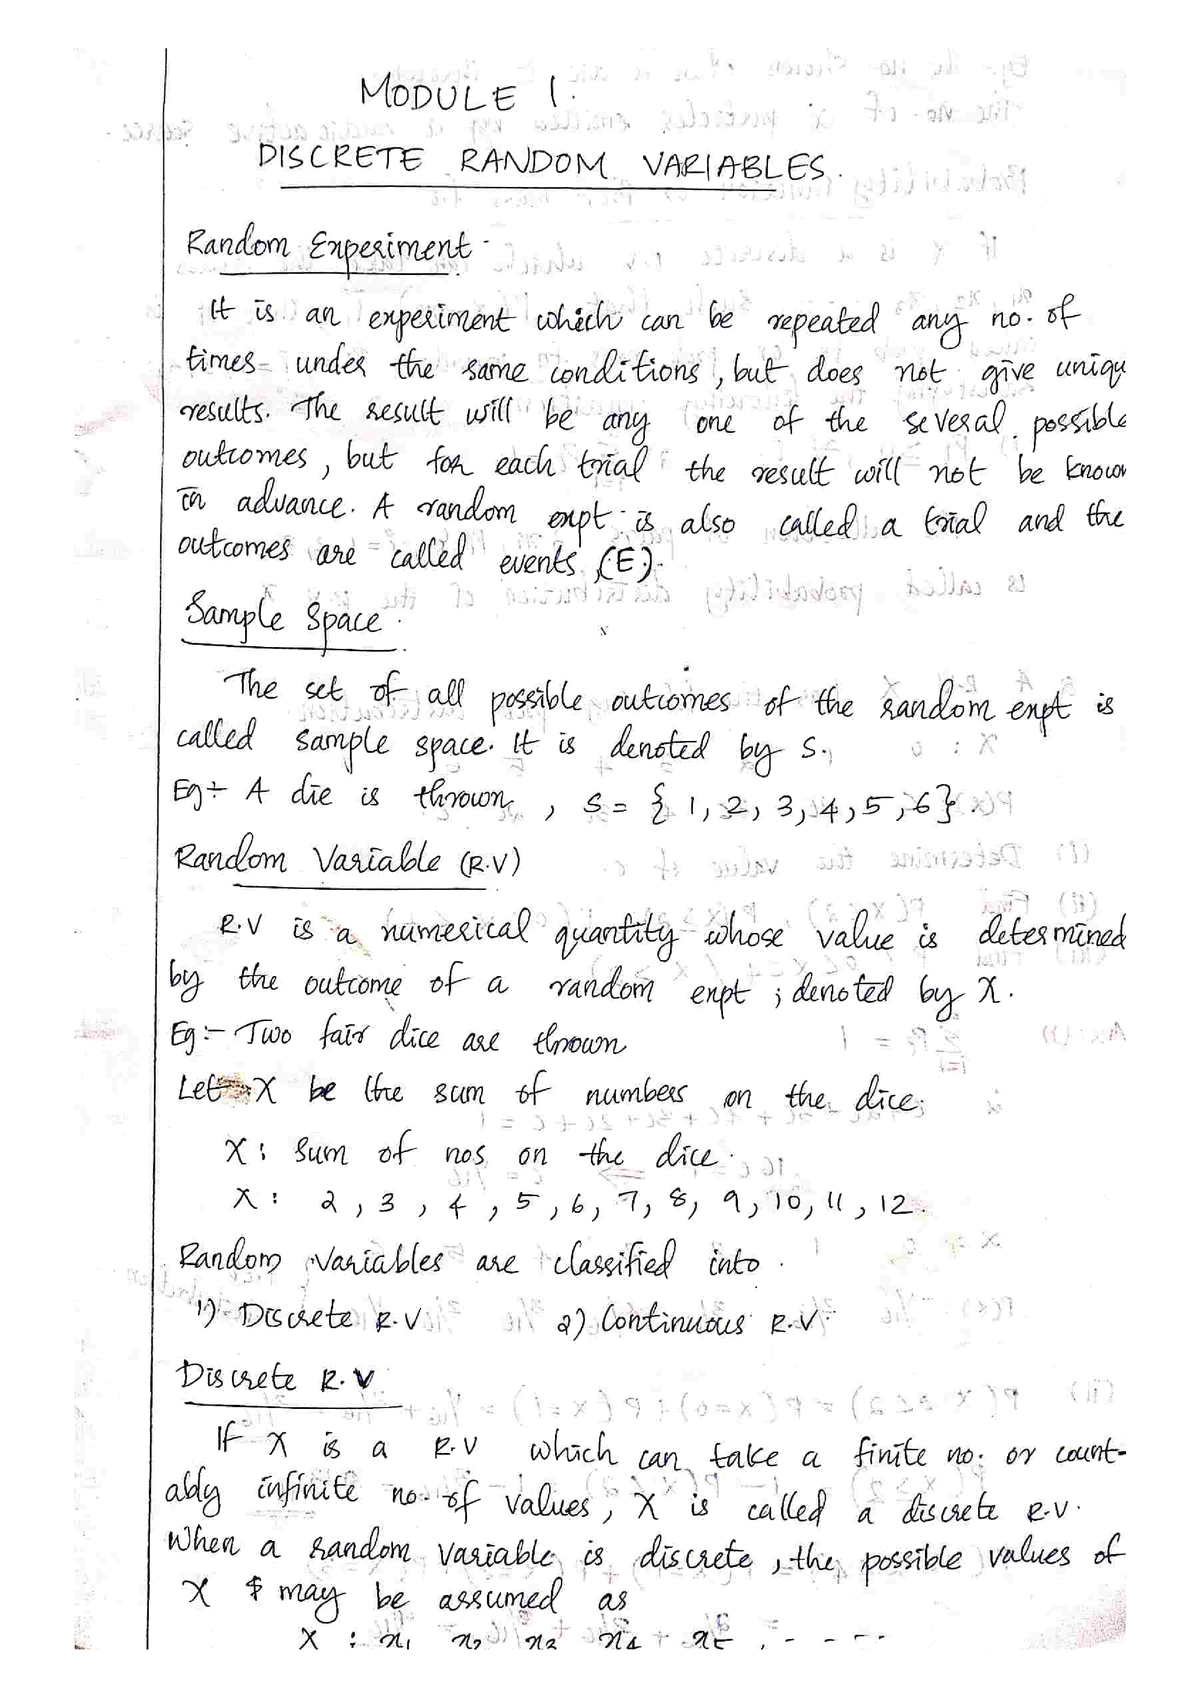 MODULE 1.
DISCRETE RANDOM VARIABLES.
Random Experiment.
It is an experiment which can be repeated any no. of
times under the same conditions, but does not give uniqu
results. The result will be any one of the several possible
outcomes, but for each trial the result will not be know
in advance. A random expt is also called a trial and the
outcomes are called events (E).
Sample Space.
The set of all possible outcomes of the random expt is
called sample space. It is denoted by S.
Eg÷ A die is thrown, S = {1, 2, 3, 4, 5, 6}.
Random Variable (R.V)
R.V is a numerical quantity whose value is determined
by the outcome of a random expt ; denoted by X.
Eg:- Two fair dice are thrown
Let X be the sum of numbers on the dice.
X: Sum of nos on the dice.
X: 2, 3, 4, 5, 6, 7, 8, 9, 10, 11, 12.
Random Variables are classified into.
1) Discrete R.V 2) Continuous R.V.
Discrete R.V
If X is a R.V which can take a finite no. or count-
ably infinite no. of values, X is called a discrete R.V.
When a random variable is discrete, the possible values of
X may be assumed as
X : x1 x2 x3 x4 x5 . - - - -